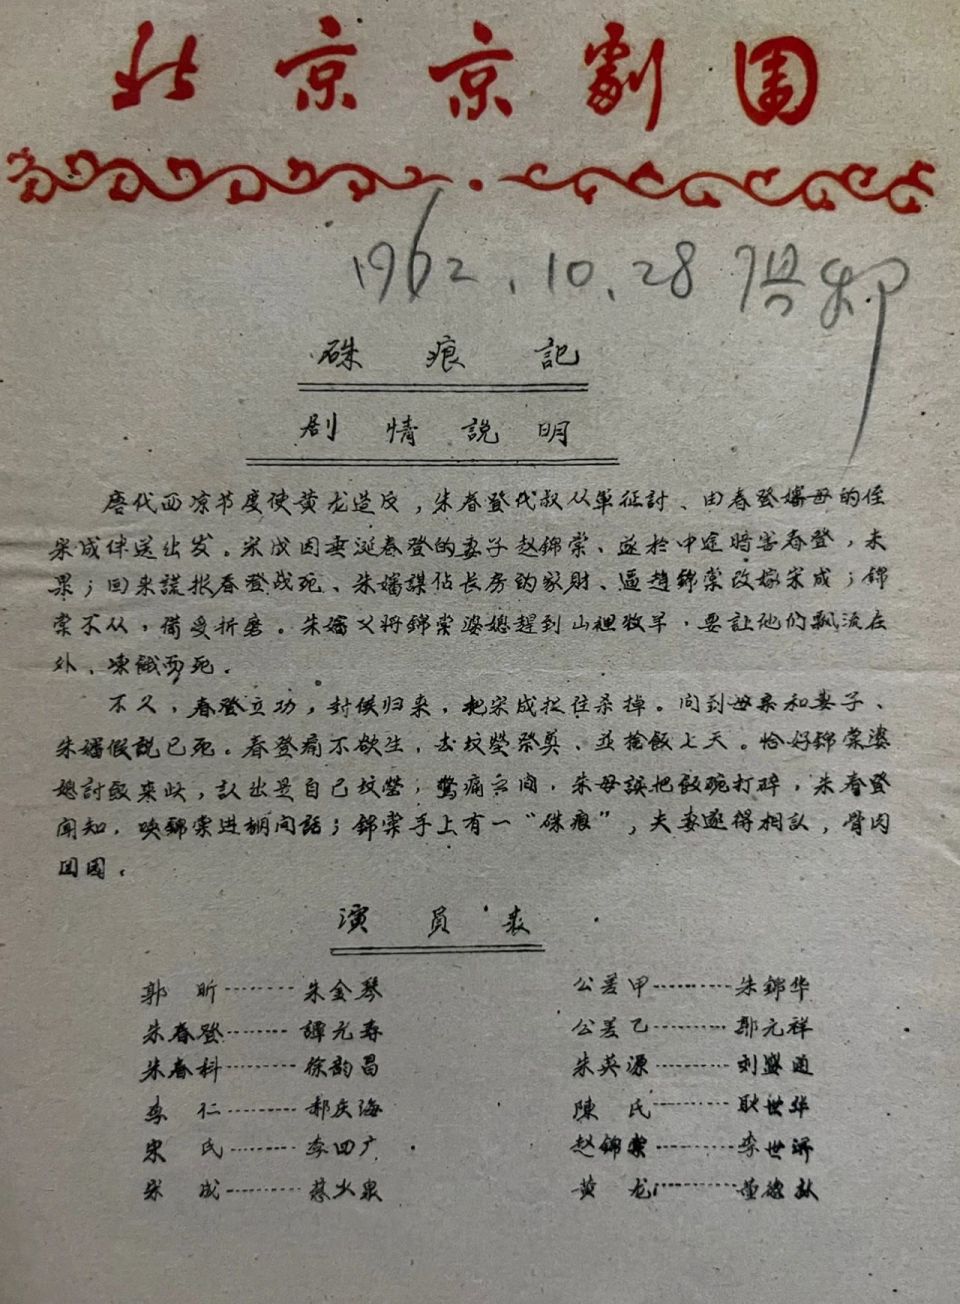 北京京剧团
1962.10.28
硃痕記
剧情說明
唐代西凉节度使黄龙造反，朱春登代叔从軍征討、由春登嬸母的侄
宋成伴送出发。宋成因垂涎春登的妻子赵錦棠、遂於中途暗害春登，未
果；回来謊报春登战死、朱嬸謀佔长房的家財、逼趙錦棠改嫁宋成；錦
棠不从，備受折磨。朱嬸又将錦棠婆媳趕到山裡牧羊，要让他們飘流在
外、凍餓而死．
不久，春登立功，封侯归来，把宋成拉住杀掉。问到母亲和妻子、
朱嬸假說已死。春登痛不欲生，去坟塋祭奠、並捨飯七天。恰好錦棠婆
媳討飯来此，認出是自己坟塋，驚痛之间，朱母誤把飯碗打碎，朱春登
闻知，唤錦棠进棚问話；錦棠手上有一“硃痕”，夫妻遂得相認，骨肉
团圆．
演員表
郭昕………朱金琴 公差甲………朱錦华
朱春登………譚元寿 公差乙………郭元祥
朱春科………徐韵昌 朱英源………刘盛通
李仁………郝庆海 陳氏………耿世华
宋氏………李四广 赵錦棠………李世济
宋成 黄龙